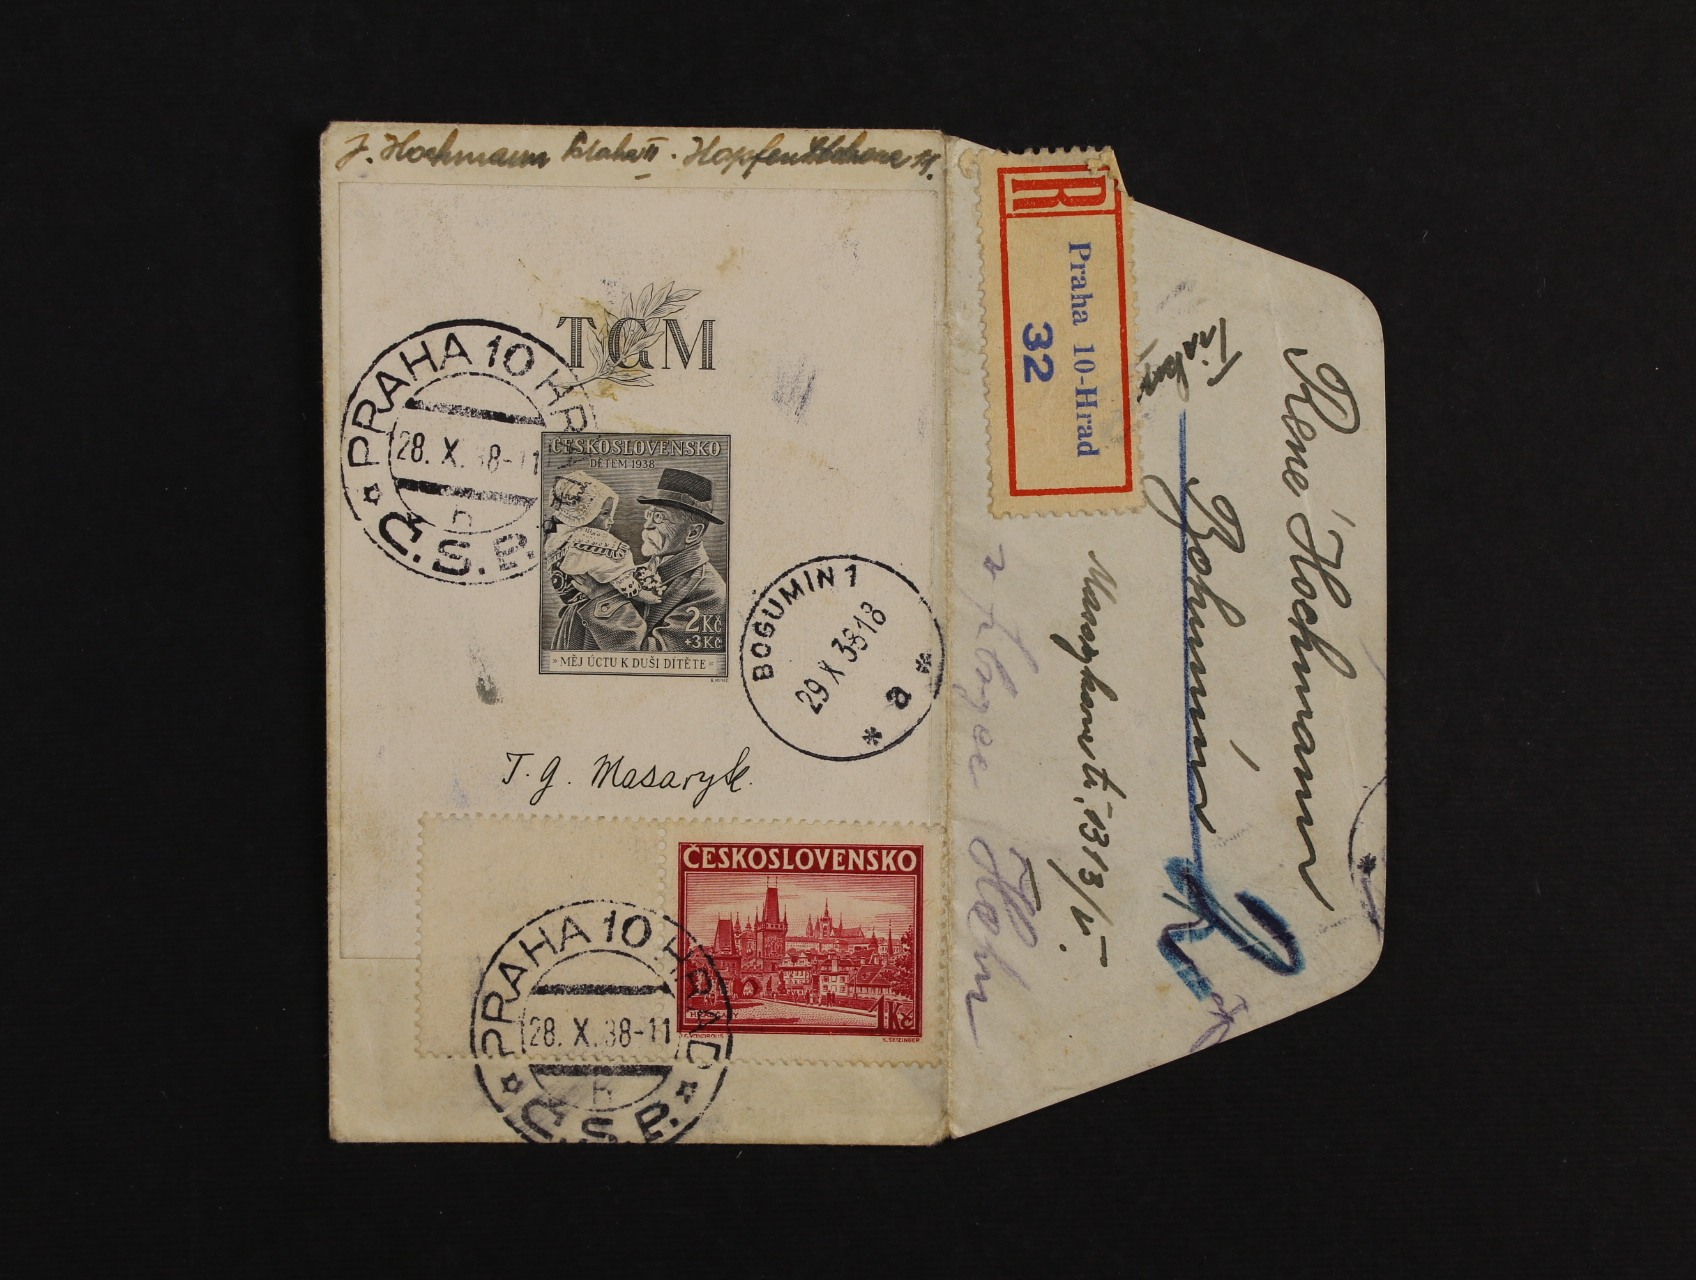 J. Hochmann Praha II. Hopfenštokova 11.
TGM
PRAHA 10 HRAD
28. X. 38-11
b
Č.S.P.
ČESKOSLOVENSKO
DĚTEM 1938
2 Kč
+3 Kč
» MĚJ ÚCTU K DUŠI DÍTĚTE «
BOGUMIN 1
29 X 38 18
a
T. G. Masaryk
ČESKOSLOVENSKO
HRADČANY
1 Kč
K. SEIZINGER
PRAHA 10 HRAD
28. X. 38-11
Č.S.P.
R
Praha 10-Hrad
32
René Hochmann
Bohumín
Masarykova tř. 1313/V.